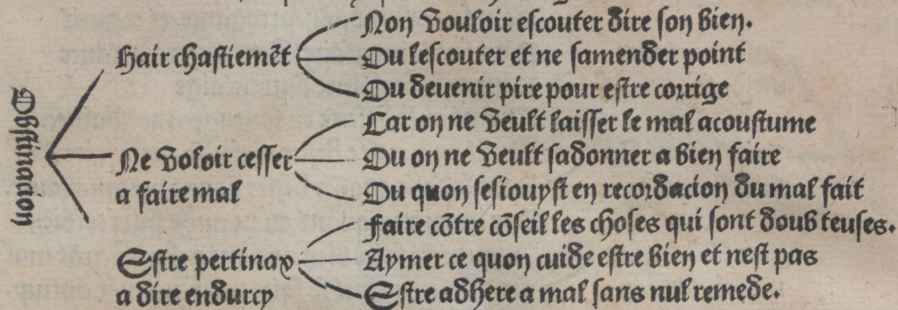 Obstinacion
Hair chastiemẽt
Non vouloir escouter dire son bien.
Ou lescouter et ne samender point
Ou devenir pire pour estre corrige
Ne voloir cesser
a faire mal
Car on ne veult laisser le mal acoustume
Ou on ne veult sadonner a bien faire
Ou quon sesiouyst en recordacion du mal fait
Estre pertinax
a dire endurcy
Faire cõtre cõseil les choses qui sont doub teuses.
Aymer ce quon cuide estre bien et nest pas
Estre adhere a mal sans nul remede.